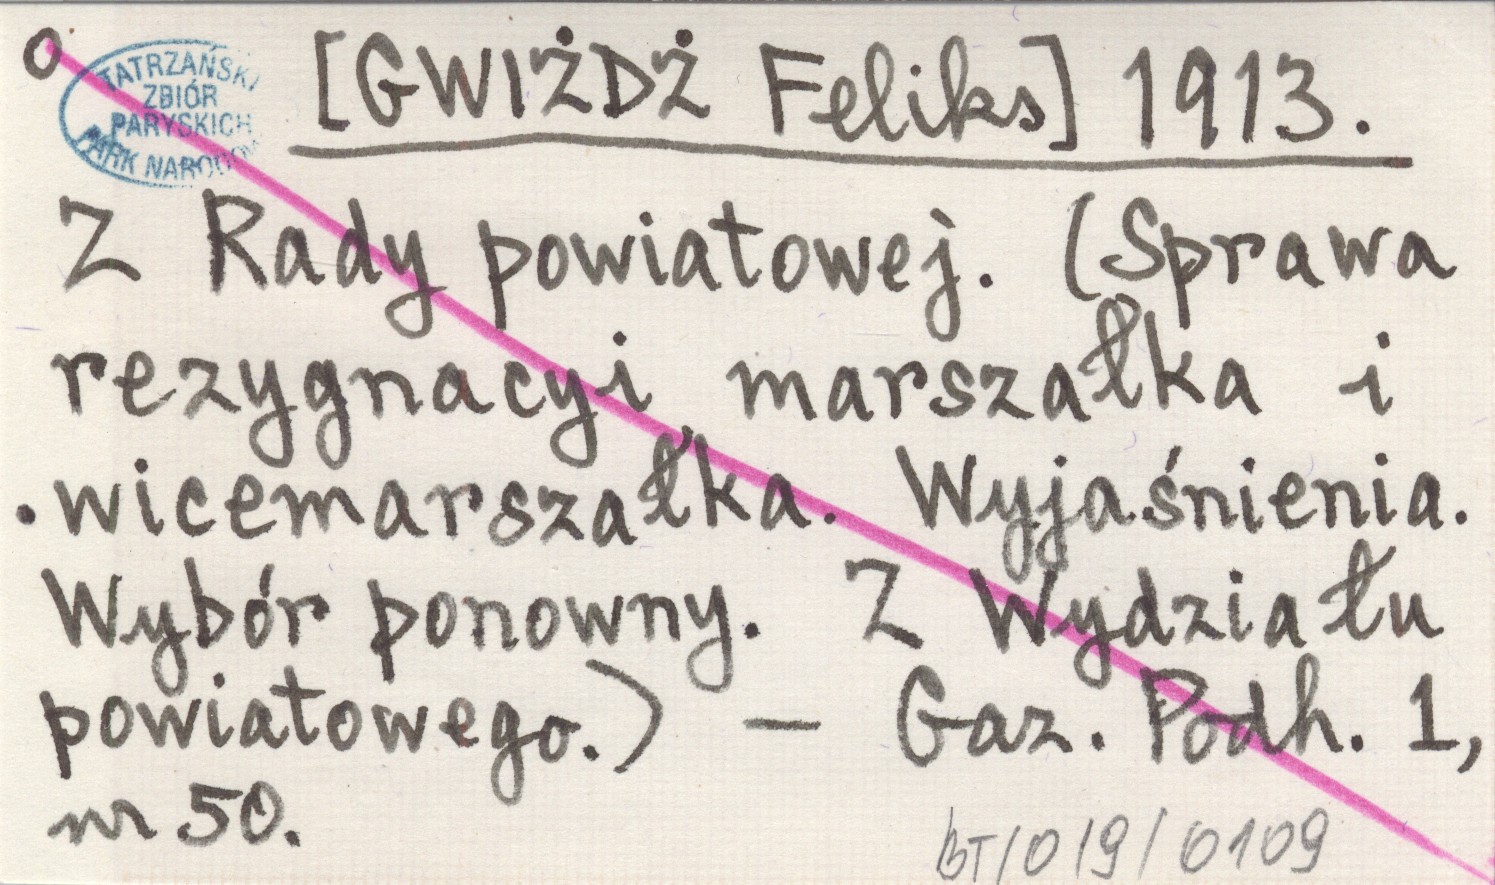 O
TATRZAŃSKI
ZBIÓR
PARYSKICH
PARK NARODOW
[GWIŻDŻ Feliks] 1913.
Z Rady powiatowej. (Sprawa
rezygnacyi marszałka i
wicemarszałka. Wyjaśnienia.
Wybór ponowny. Z Wydziału
powiatowego.) — Gaz. Podh. 1,
nr 50.
BT/019/0109